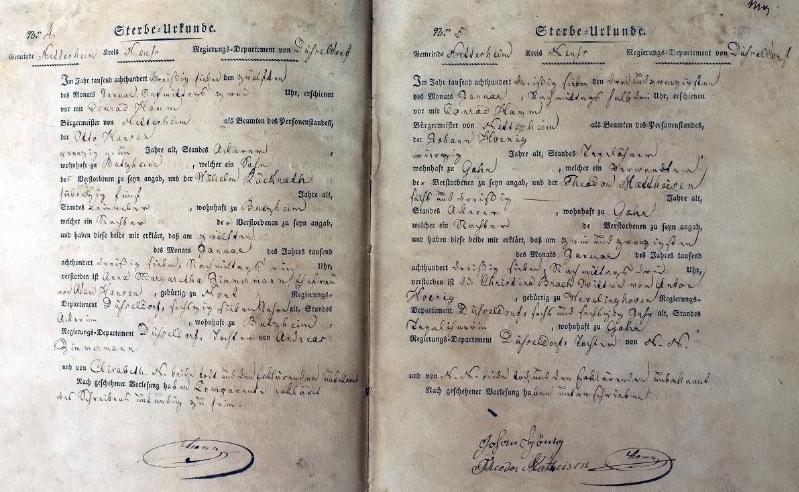 Nro. 4.
Sterbe-Urkunde.
Gemeinde Nettesheim Kreis Neuss Regierungs-Departement von Düsseldorf
Im Jahr tausend achthundert dreißig sieben den zwölften
des Monats Januar Nachmittags zwei Uhr, erschienen
vor mir Conrad Hamm
Bürgermeister von Nettesheim als Beamten des Personenstandes,
der Otto Hansen
Jahre alt, Standes Ackerer
wohnhaft zu Butzheim, welcher ein Sohn
des Verstorbenen zu seyn angab, und der Wilhelm
siebenzig fünf Jahre alt,
Standes, wohnhaft zu Butzheim,
welcher ein Nachbar der Verstorbenen zu seyn angab,
und haben diese beide mir erklärt, daß am zwölften
des Monats Januar des Jahres tausend
achthundert dreißig sieben, Nachmittags ein Uhr,
verstorben ist Anna Margaretha Zimmermann Ehefrau
von Hansen, gebürtig zu Regierungs-
Departement Düsseldorf, sechzig sieben Jahre alt, Standes
Ackerin, wohnhaft zu Butzheim,
Regierungs-Departement Düsseldorf, Tochter von Andreas
Zimmermann
und von Elisabeth N. beide todt und den Erklärenden unbekannt
Nach geschehener Vorlesung haben Comparente erklärt
des Schreibens unkundig zu sein.
Hamm
Nro. 5
Sterbe-Urkunde.
Gemeinde Nettesheim Kreis Neuss Regierungs-Departement von Düsseldorf
Im Jahr tausend achthundert dreißig sieben den drei und zwanzigsten
des Monats Januar, Nachmittags halb Uhr, erschienen
vor mir Conrad Hamm
Bürgermeister von Nettesheim als Beamten des Personenstandes,
der Johann Hoenig
vierzig Jahre alt, Standes Tagelöhner
wohnhaft zu Gohr, welcher ein Verwandter
der Verstorbenen zu seyn angab, und der Theodor Mattheisen
sechs und dreißig Jahre alt,
Standes Ackerer, wohnhaft zu Gohr
welcher ein Nachbar de Verstorbenen zu seyn angab,
und haben diese beide mir erklärt, daß am zwei und zwanzigsten
des Monats Januar des Jahres tausend
achthundert dreißig sieben, Nachmittags drei Uhr,
verstorben ist die Christina Brach Wittwe von Anton
Hoenig, gebürtig zu Wevelinghoven Regierungs-
Departement Düsseldorf, sechs und sechszig Jahr alt, Standes
Tagelöhnerin, wohnhaft zu Gohr
Regierungs-Departement Düsseldorf, Tochter von N. N.
und von N. N. beide todt und den Erklärenden unbekannt
Nach geschehener Vorlesung haben unterschrieben.
Johan Hönig
Theodor Matheisen
Hamm